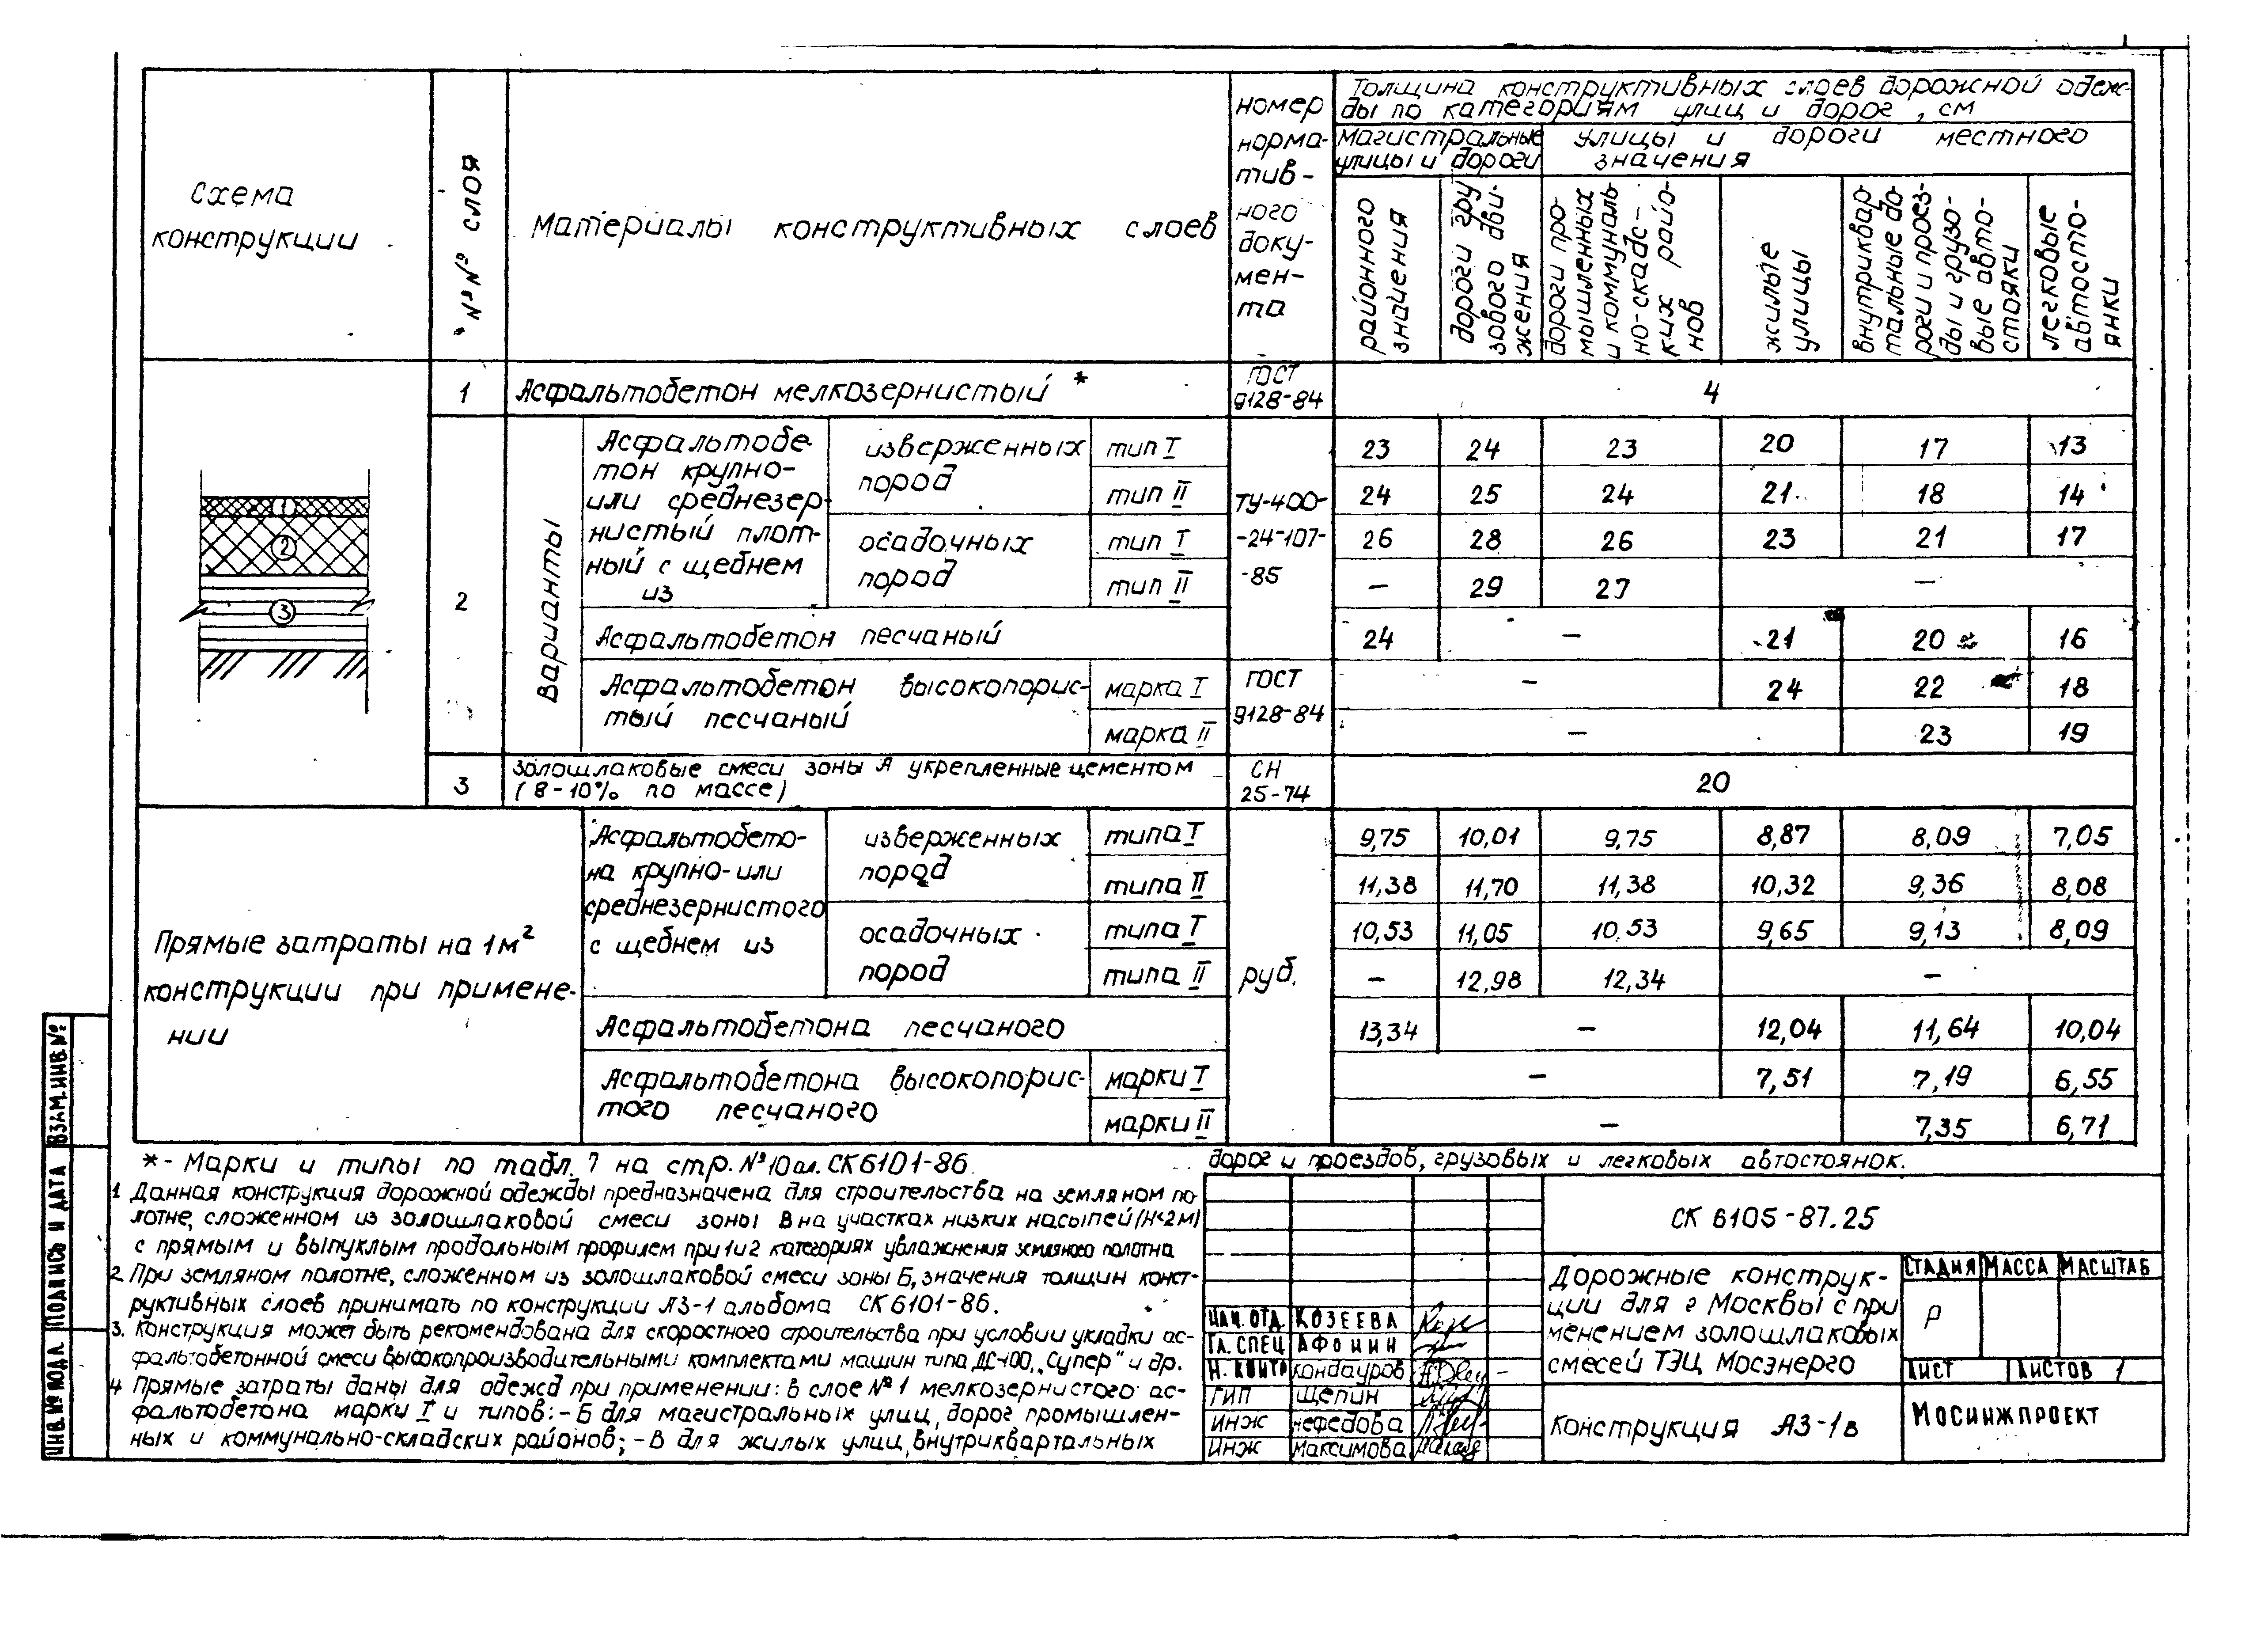 Схема
конструкции
№№ слоя
Материалы конструктивных слоев
номер
норма-
тив-
ного
доку-
мен-
та
Толщина конструктивных слоев дорожной одеж-
ды по категориям улиц и дорог, см
магистральные
улицы и дороги
улицы и дороги местного
значения
районного
значения
дороги гру
зового дви-
жения
дороги про-
мышленных
и коммуналь
но-скадс-
ких райо-
нов
жилые
улицы
внутриквар
тальные до-
роги и проез-
ды и грузо-
вые авто-
стояки
легковые
автосто-
янки
1 Асфальтобетон мелкозернистый *
ГОСТ
9128-84
4
2
Варианты
Асфальтобе
тон крупно-
или среднезер-
нистый плот-
ный с щебнем
из
изверженных
пород
тип I 23 24 23 20 17 13
тип II 24 25 24 21 18 14
осадочных
пород
тип I 26 28 26 23 21 17
тип II – 29 27 –
ТУ-400-
-24-107-
-85
Асфальтобетон песчаный 24 – 21 20 16
Асфальтобетон высокопорис-
тый песчаный
ГОСТ
9128-84
марка I – 24 22 18
марка II – 23 19
3
золошлаковые смеси зоны А укрепленные цементом
(8-10% по массе)
СН
25-74
20
1
2
3
Прямые затраты на 1м²
конструкции при примене-
нии
Асфальтобето-
на крупно-или
среднезернистого
с щебнем из
изверженных
пород
типа I 9,75 10,01 9,75 8,87 8,09 7,05
типа II 11,38 11,70 11,38 10,32 9,36 8,08
осадочных
пород
типа I 10,53 11,05 10,53 9,65 9,13 8,09
типа II – 12,98 12,34 –
руб.
Асфальтобетона песчаного 13,34 – 12,04 11,64 10,04
Асфальтобетона высокопорис-
того песчаного
марки I – 7,51 7,19 6,55
марки II – 7,35 6,71
*- Марки и типы по табл. 7 на стр. №10 ал. СК6101-86.
1 Данная конструкция дорожной одежды предназначена для строительства на земляном по-
лотне, сложенном из золошлаковой смеси зоны В на участках низких насыпей (Н<2м)
с прямым и выпуклым продольным профилем при 1и2 категориях увлажнения земляного полотна
2. При земляном полотне, сложенном из золошлаковой смеси зоны Б, значения толщин конст-
руктивных слоев принимать по конструкции АЗ-1 альбома СК6101-86.
3. Конструкция может быть рекомендована для скоростного строительства при условии укладки ас-
фальтобетонной смеси высокопроизводительными комплектами машин типа ДС-100, „Супер" и др.
4 Прямые затраты даны для одежд при применении: в слое №1 мелкозернистого ас-
фальтобетона марки I и типов: -Б для магистральных улиц, дорог промышлен-
ных и коммунально-складских районов; -В для жилых улиц, внутриквартальных
дорог и проездов, грузовых и легковых автостоянок.
НАЧ. ОТД. КОЗЕЕВА
ГЛ. СПЕЦ АФОНИН
Н. КОНТР Кондауров
ГИП Щепин
ИНЖ Нефедова
ИНЖ Максимова
СК 6105-87.25
Дорожные конструк-
ции для г Москвы с при
менением золошлаковых
смесей ТЭЦ Мосэнерго
СТАДИЯ МАССА МАСШТАБ
Р
Лист Листов 1
Конструкция АЗ-1в
МОСИНЖПРОЕКТ
ВЗАМ. ИНВ. №
ПОДПИСЬ И ДАТА
ИНВ. № ПОДЛ.